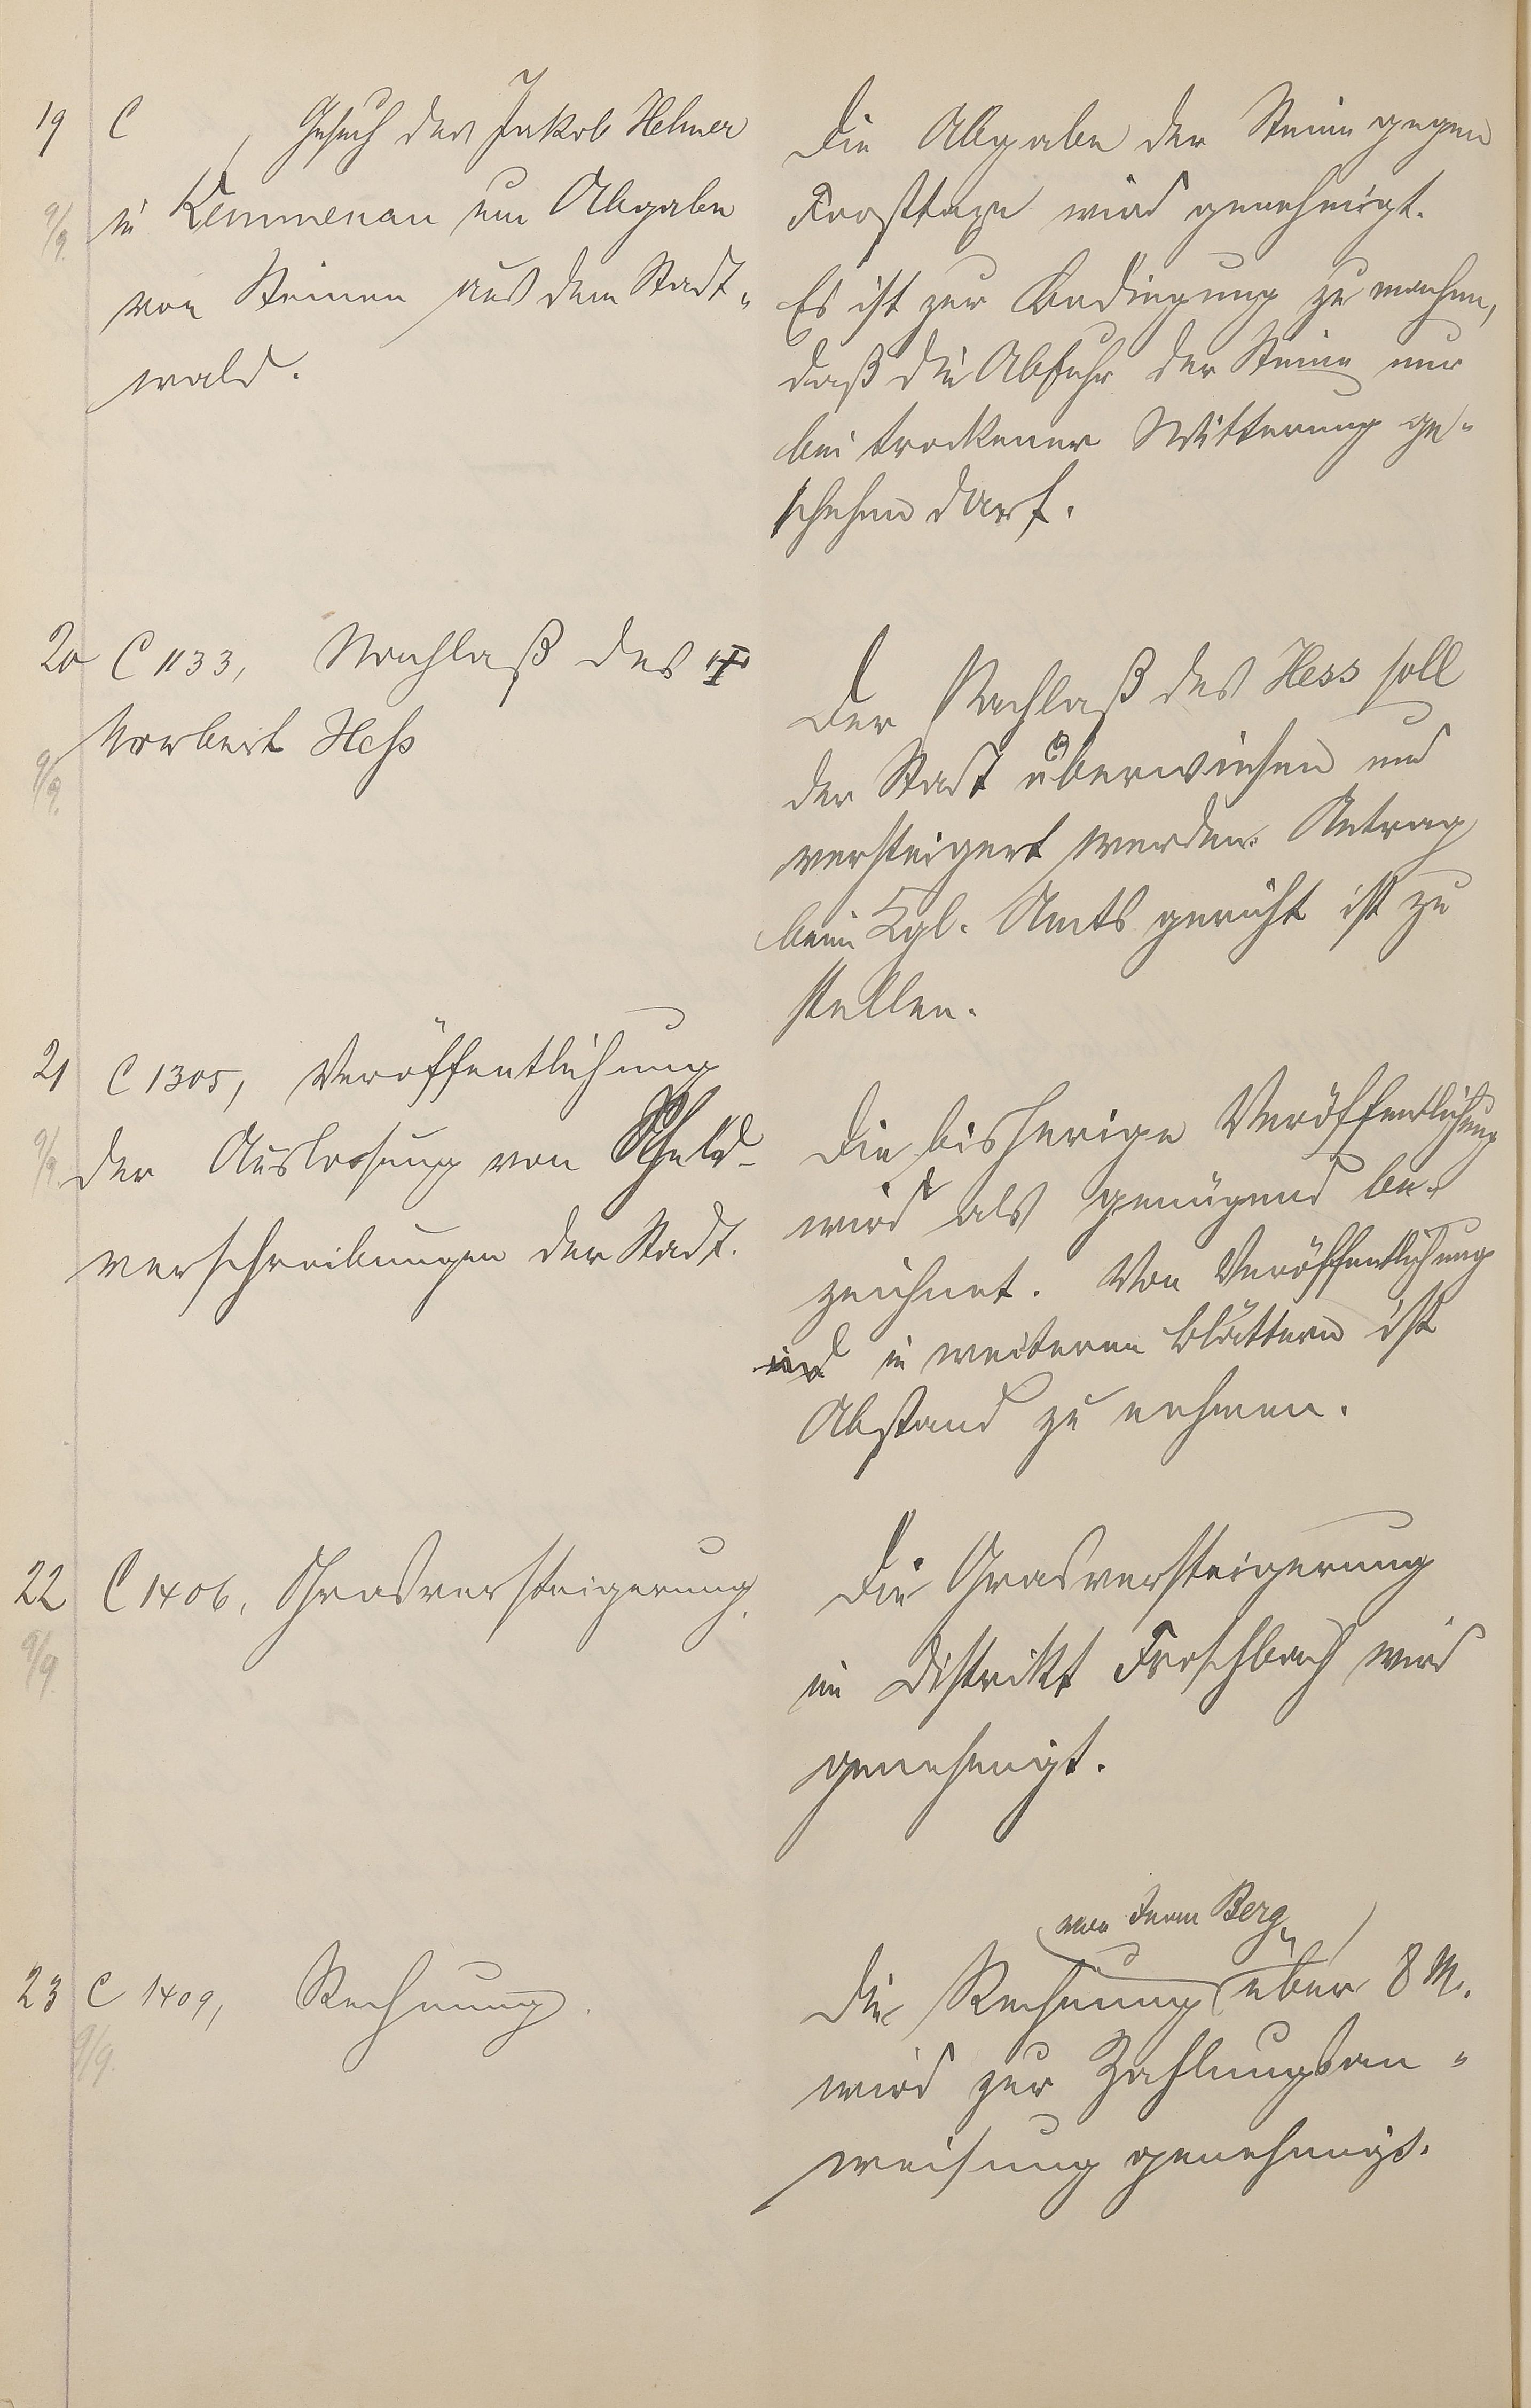 19 C , Gesuch des Jakob Helmer
9/9.
in Kemmenau um Abgabe
von Steinen aus dem Stadt-
wald.
Die Abgabe der Steine gegen
Forsttaxe wird genehmigt.
Es ist zur Bedingung zu machen,
daß die Abfuhr der Steine nur
bei trockener Witterung ge-
schehen darf.
20 C 1133, Nachlaß des †
Norbert Heß
9/9.
Der Nachlaß des Hess soll
der Stadt überwiesen und
versteigert werden. Antrag
beim Kgl. Amtsgericht ist zu
stellen.
21 C 1305, Veröffentlichung
9/9.
der Auslosung von Schuld-
verschreibungen der Stadt.
Die bisherige Veröffentlichung
wird als genügend be-
zeichnet. Von Veröffentlichung
in weiteren Blättern ist
Abstand zu nehmen.
22 C 1406, Grasversteigerung.
9/9.
Die Grasversteigerung
im Distrikt Froschbach wird
genehmigt.
23 C 1409, Rechnung.
9/9.
von Berg
Die Rechnung über 8 M.
wird zur Zahlungsan-
weisung genehmigt.